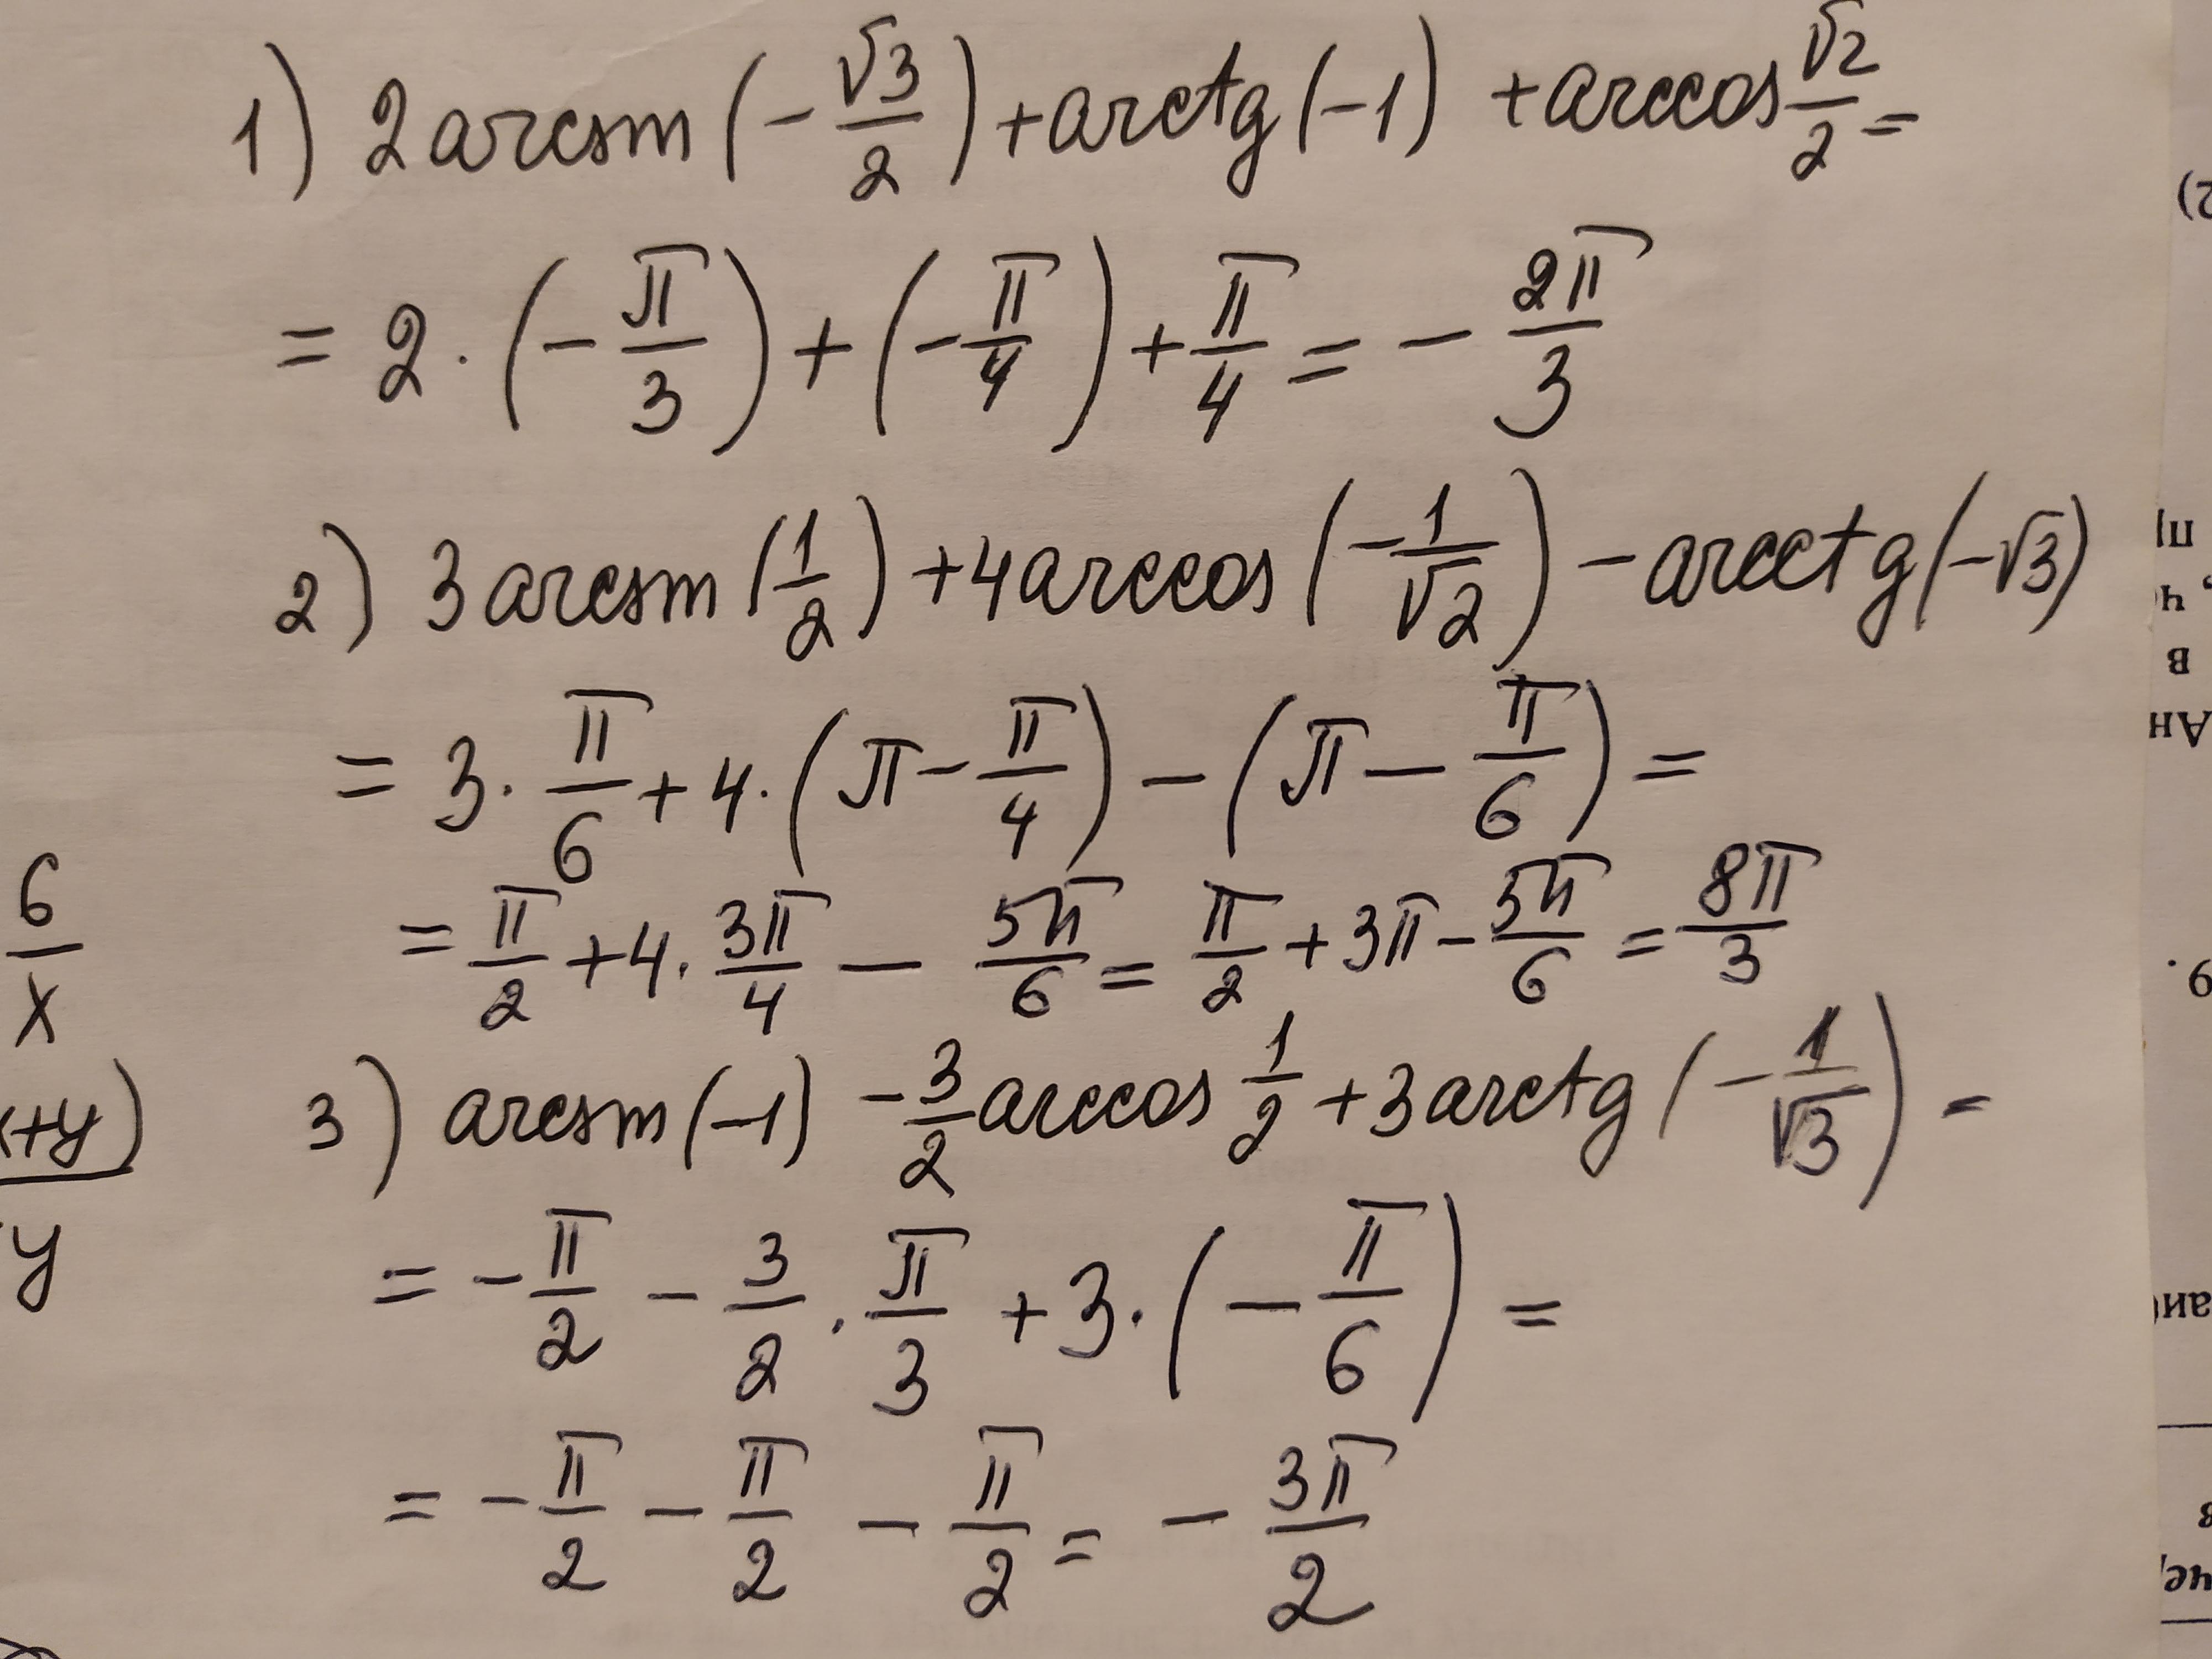 1) 2 arcsin (-√3/2) + arctg (-1) + arccos √2/2 =
= 2 · (-π/3) + (-π/4) + π/4 = - 2π/3
2) 3 arcsin (1/2) + 4 arccos (-1/√2) - arcctg (-√3)
= 3 · π/6 + 4 · (π - π/4) - (π - π/6) =
= π/2 + 4 · 3π/4 - 5π/6 = π/2 + 3π - 5π/6 = 8π/3
3) arcsin (-1) - 3/2 arccos 1/2 + 3 arctg (-1/√3) =
= - π/2 - 3/2 · π/3 + 3 · (-π/6) =
= - π/2 - π/2 - π/2 = - 3π/2
6/x
+y)
y
2)
9.